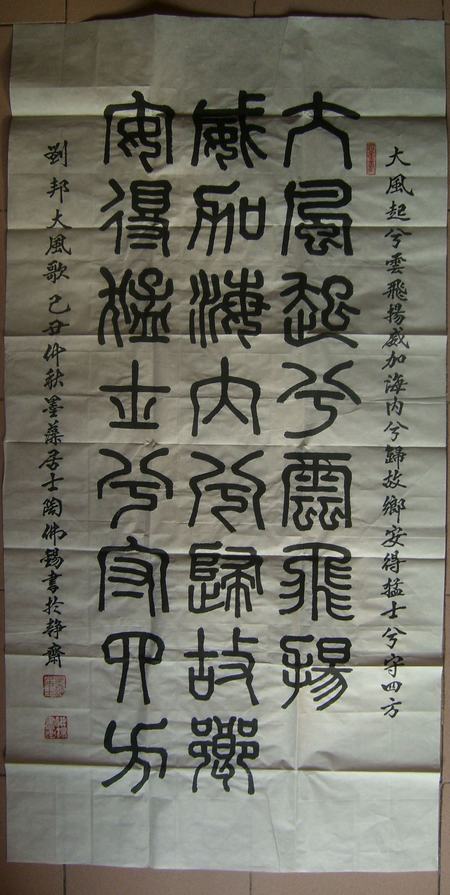 大風起兮雲飛揚威加海內兮歸故鄉安得猛士兮守四方
大風起兮雲飛揚
威加海內兮歸故鄉
安得猛士兮守四方
劉邦大風歌己丑仲秋墨藻居士陶佛錫書於靜齋